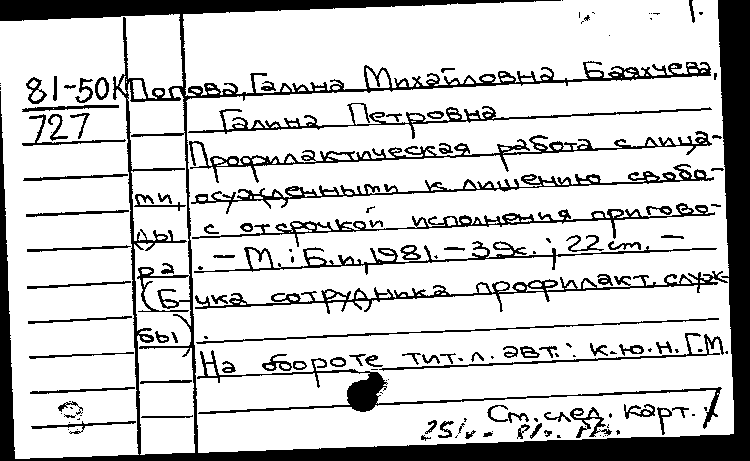 Г.
81-50К Попова, Галина Михайловна, Баяхчева,
727 Галина Петровна
Профилактическая работа с лица-
ми, осужденными к лишению свобо-
ды с отсрочкой исполнения пригово-
ра. - М. : Б.и., 1981. - 39с. ; 22 см. -
(Б-чка сотрудника профилакт. служ-
бы).
На обороте тит. л. авт.: к.ю.н. Г.М.
См. след. карт. /